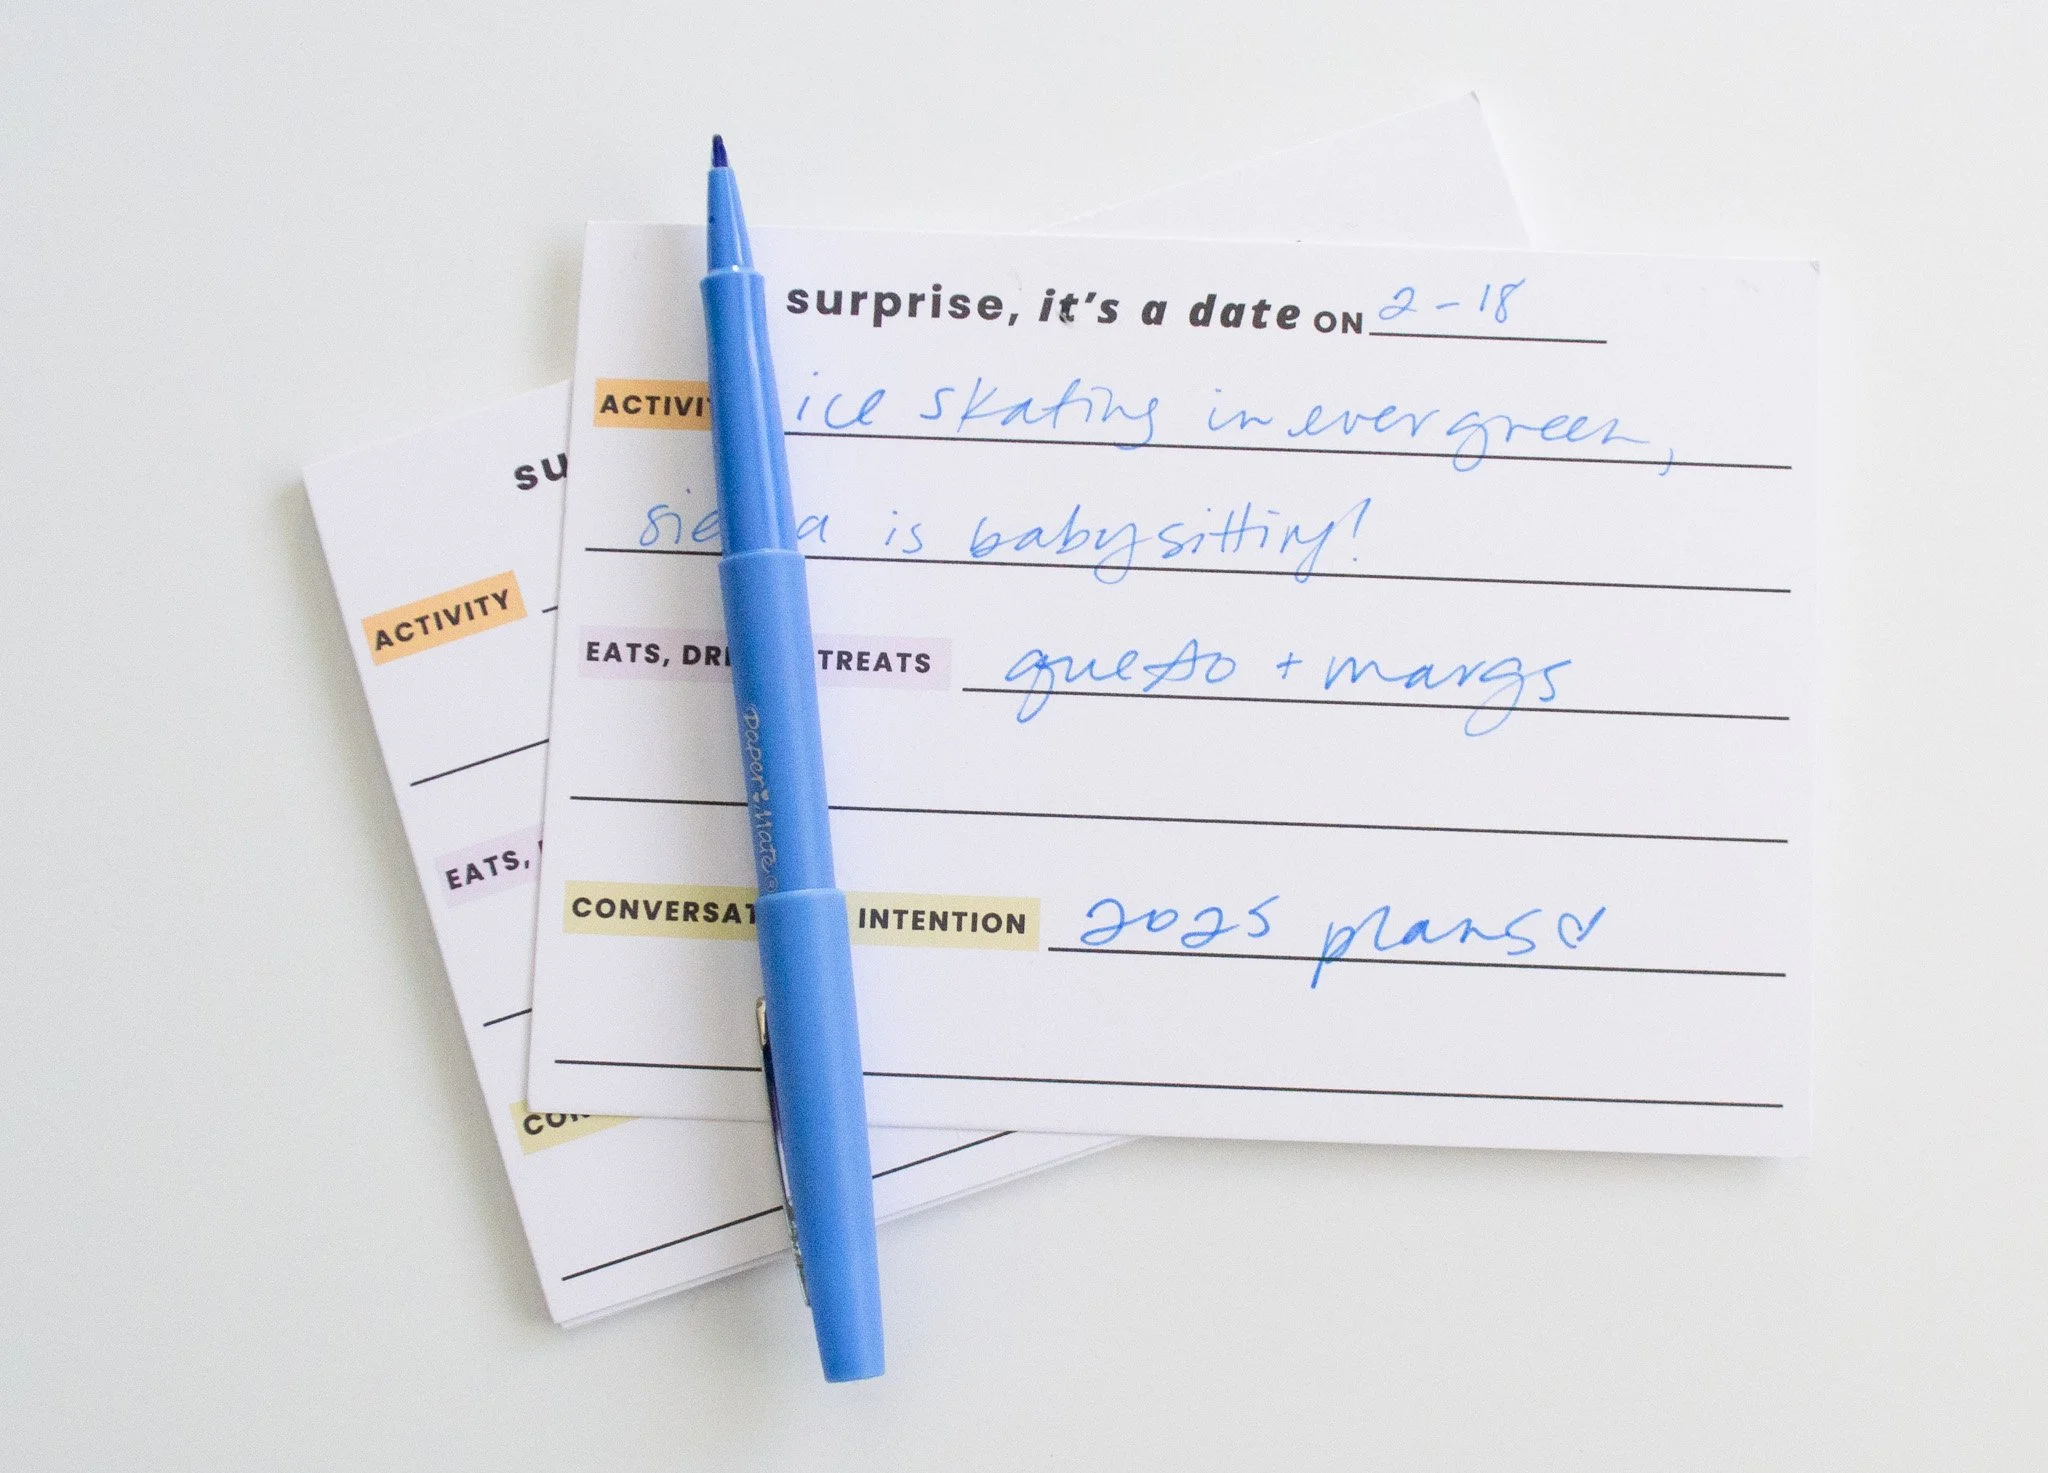 surprise, it's a date ON 2-18
ACTIVI ice skating in evergreen,
sie a is babysitting!
EATS, DRI TREATS queso + margs
CONVERSAT INTENTION 2025 plans♡
Paper Mate
su
ACTIVITY
EATS,
CON